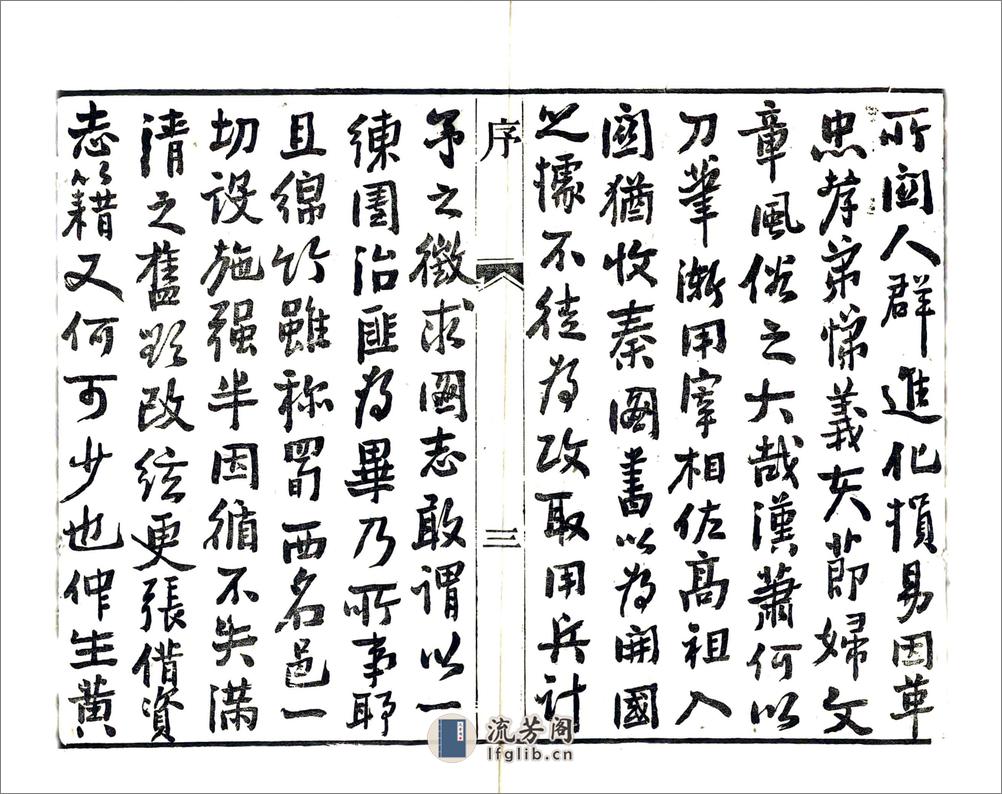 所関人群進化損易因革
忠孝弟悌義夫節婦文
章風俗之大哉漢蕭何以
刀筆漸用宰相佐高祖入
關猶收秦圖書以為開國
之據不徒為攻取用兵計
序
三
予之徵求圖志敢謂以一
練團治匪為畢乃所事耶
且綿竹雖称蜀西名邑一
切設施强半因循不失满
清之舊欲改弦更張偕資
志籍又何可少也仲生黄
流芳阁
lfglib.cn